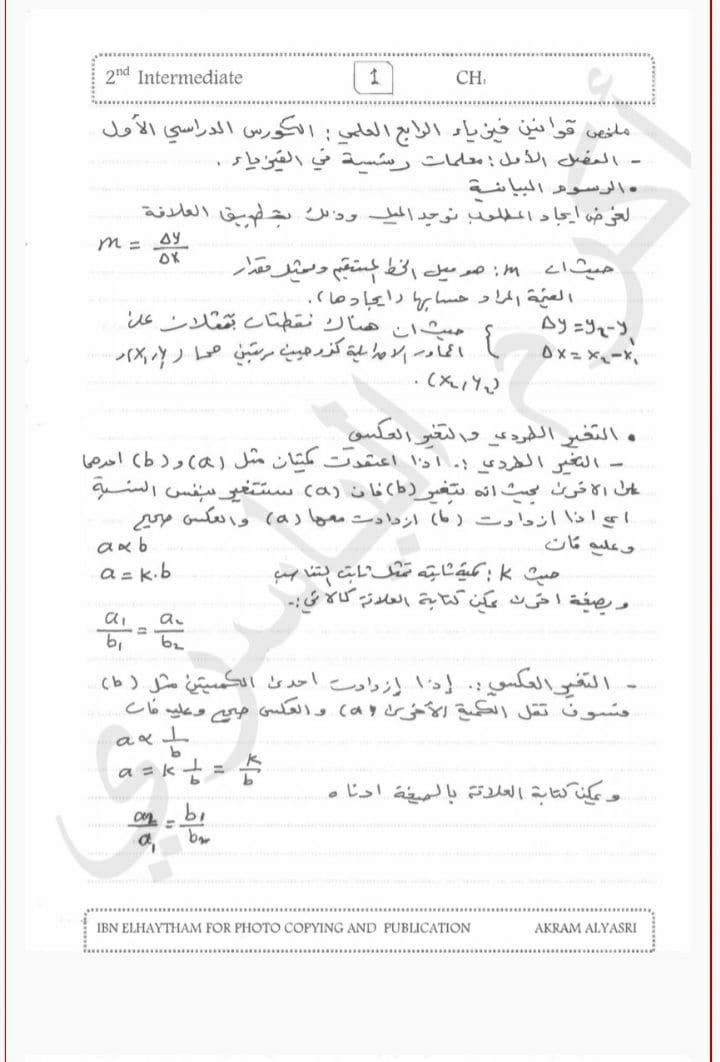 2nd Intermediate 1 CH:
ملخص قوانين فيزياء الرابع العلمي: الكورس الدراسي الأول
- الفصل الأول: معلمات رئيسية في الفيزياء.
• الرسوم البيانية
لغرض ايجاد المطلوب نوجد الميل وذلك بتطبيق العلاقة
m = Δy/Δx
حيث ان m: هو ميل الخط المستقيم ويمثل مقدار
القيمة المراد حسابها (ايجادها).
Δy = y₂-y₁ حيث ان هناك نقطتان تمثلان على
Δx = x₂-x₁ المحاور الاحداثية كزوجين مرتبين هما (x₁,y₁) و
(x₂,y₂).
• التغير الطردي والتغير العكسي
- التغير الطردي :. اذا اعتمدت كميتان مثل (a) و(b) احدهما
على الاخرى بحيث انه بتغير (b) فان (a) ستتغير بنفس النسبة
اي اذا ازدادت (b) ازدادت معها (a) والعكس صحيح
وعليه فان
a ∝ b
a = k.b حيث k: كمية ثابته تمثل ثابت التناسب
وبصيغة اخرى يمكن كتابة العلاقة كالاتي:-
a₁/b₁ = a₂/b₂
- التغير العكسي :. إذا إزدادت احدى الكميتين مثل (b)
فسوف تقل الكمية الأخرى (a) والعكس صحيح وعليه فان
a ∝ 1/b
a = k 1/b = k/b
ويمكن كتابة العلاقة بالصيغة ادناه
a₂/a₁ = b₁/b₂
IBN ELHAYTHAM FOR PHOTO COPYING AND PUBLICATION AKRAM ALYASRI
أكرم الياسري